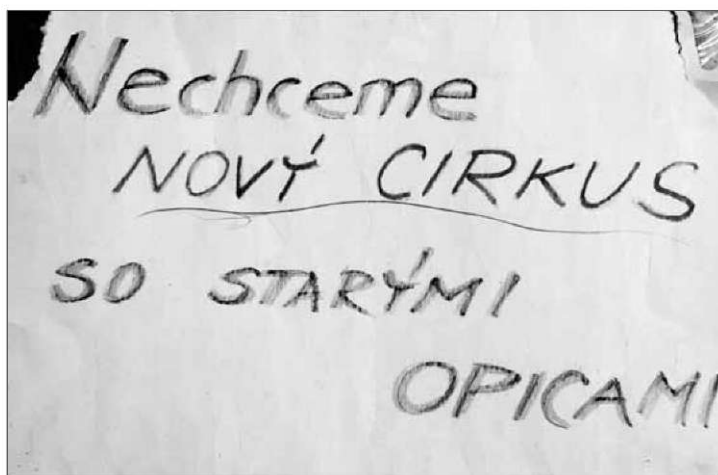 Nechceme
NOVÝ CIRKUS
SO STARÝMI
OPICAMI